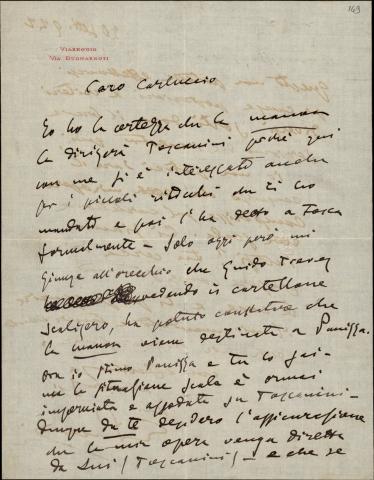 163
VIAREGGIO
VIA BUONARROTI
Caro Carluccio
Io ho la certezza che la manon
la dirigerà Toscanini poiché qui
con me si è interessato anche
per i piccoli ritocchi che ti ho
mandato e poi l'ha detto a Tosca
formalmente — Solo oggi però mi
giunge all'orecchio che Guido
vedendo il cartellone
Scaligero, ha potuto constatare che
la manon viene destinata a Panizza.
Ora io stimo Panizza e tu lo sai —
ma la situazione Scala è ormai
imperniata e appoggiata su Toscanini —
dunque da te desidero l'assicurazione
che la mia opera venga diretta
da Lui (Toscanini) — e che se